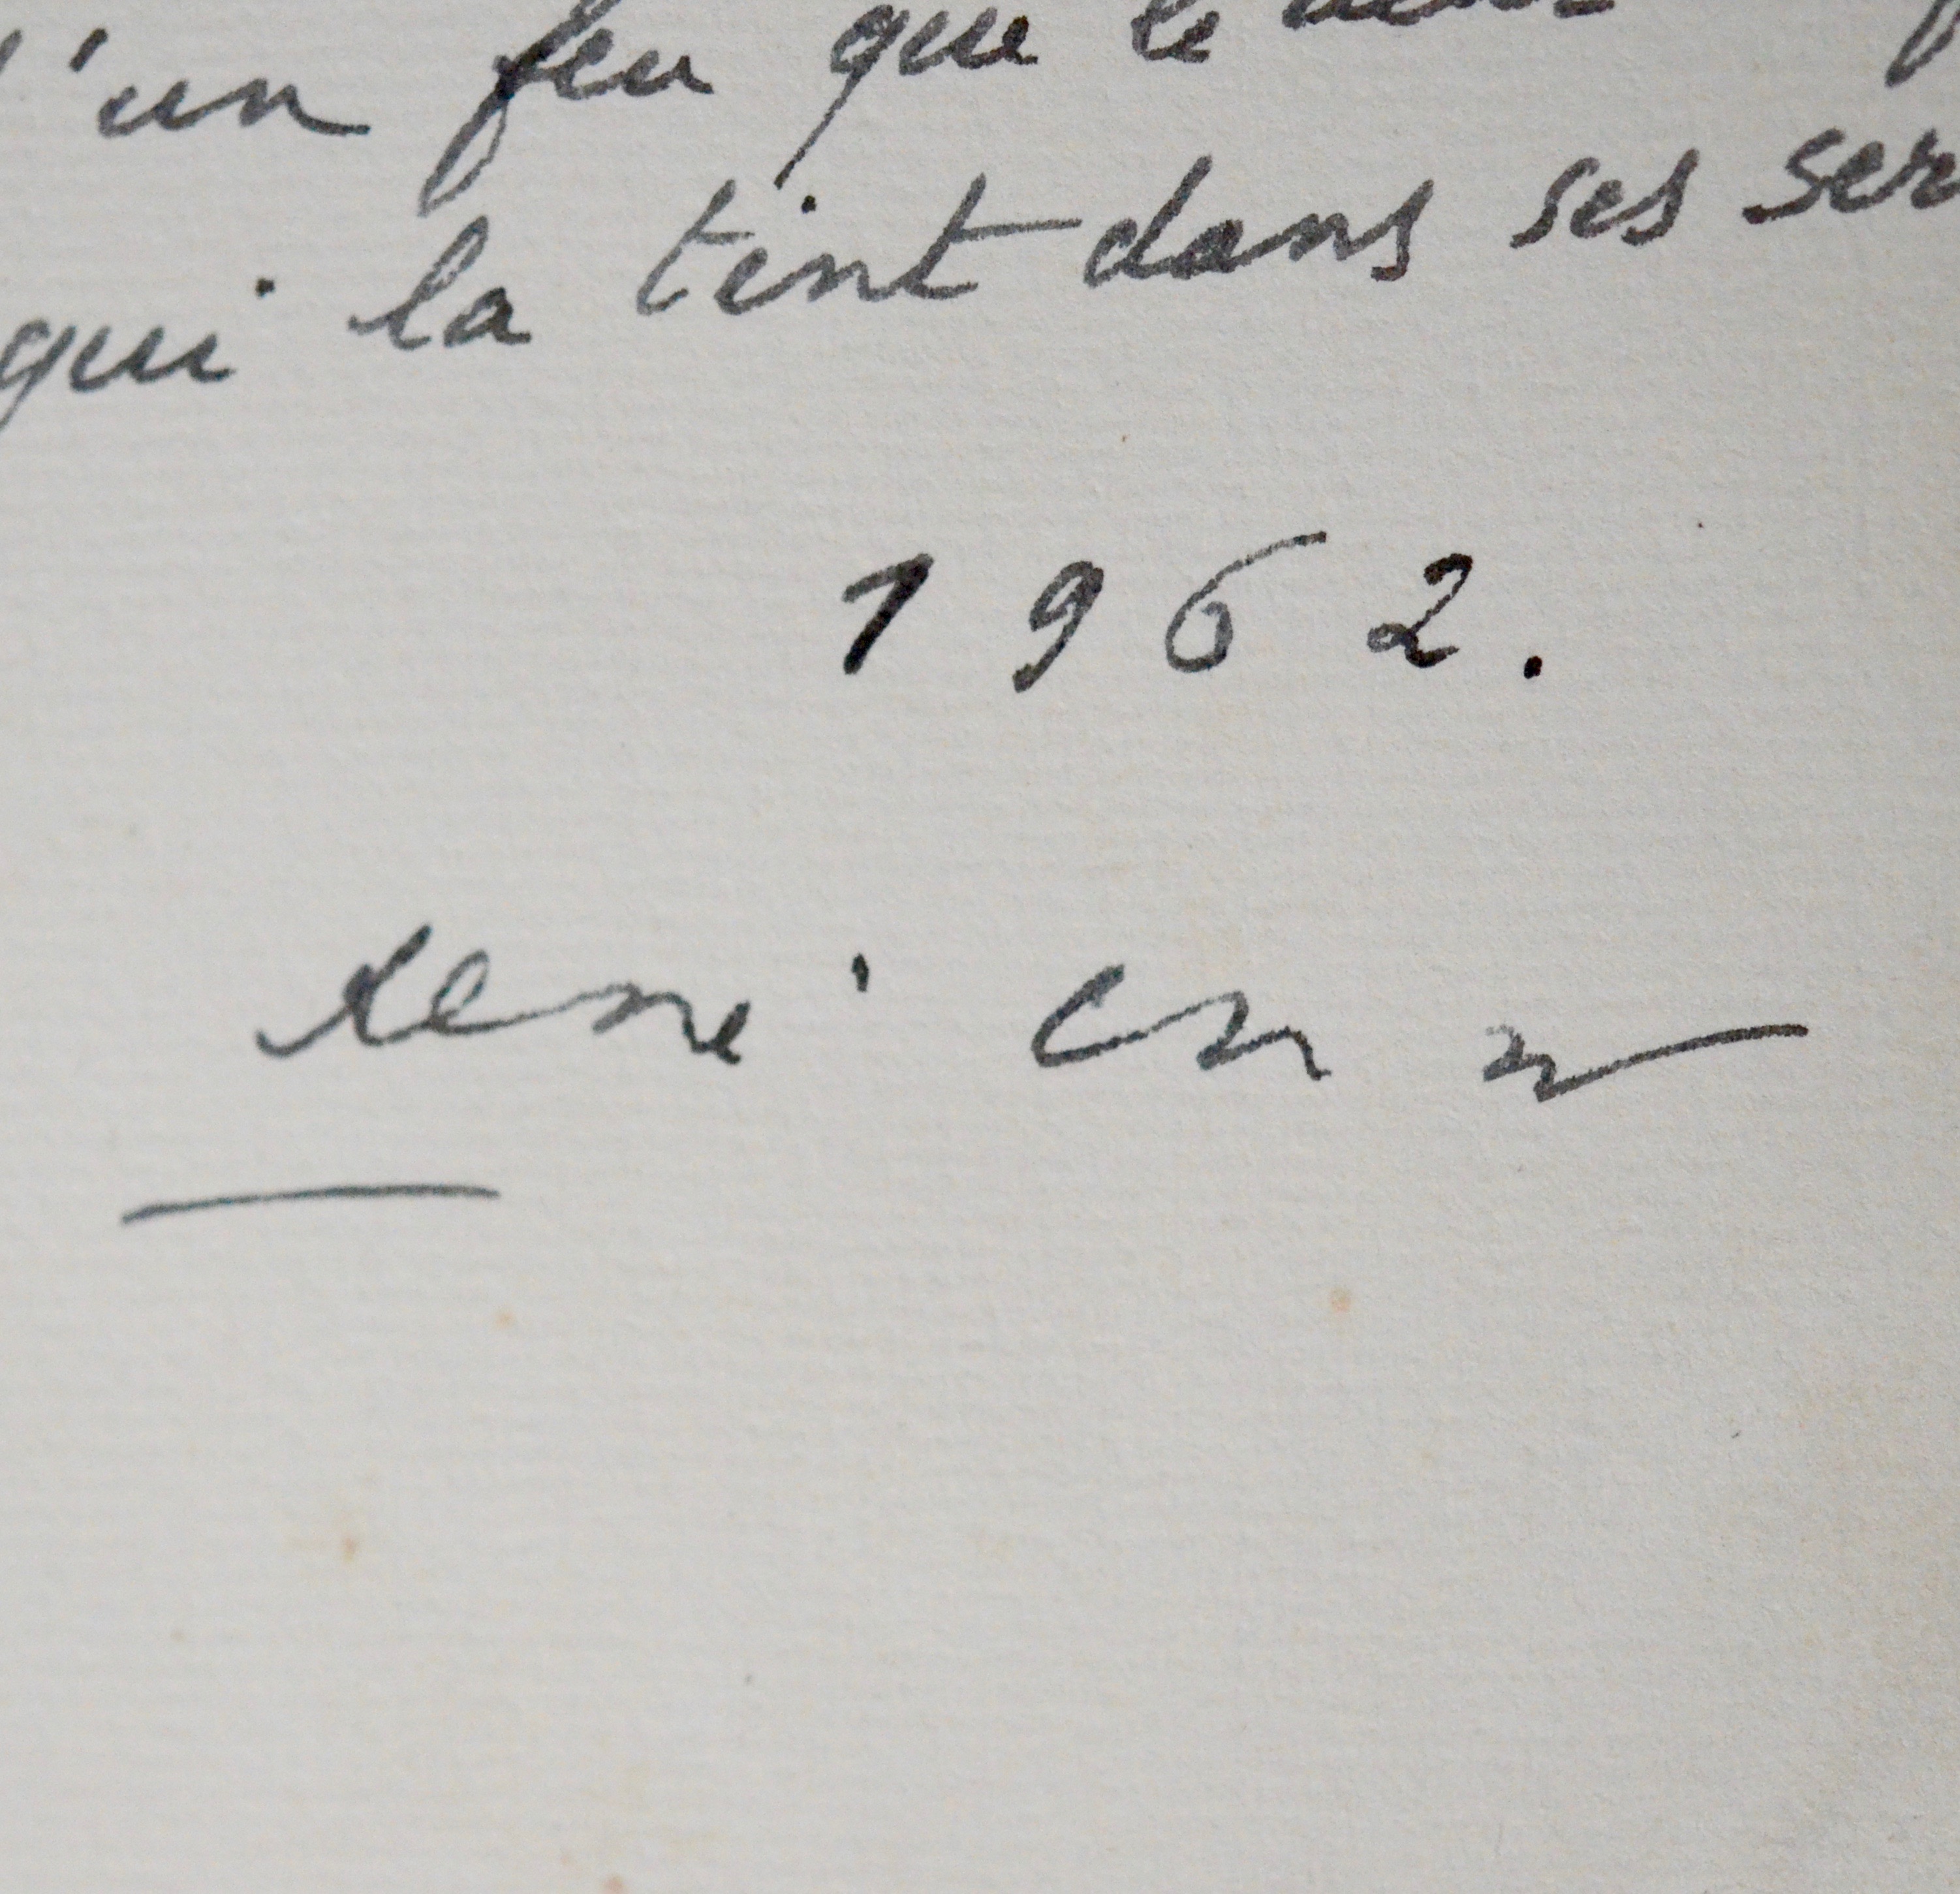 'un feu que le
qui la tint dans ses ser
1962.
René Char